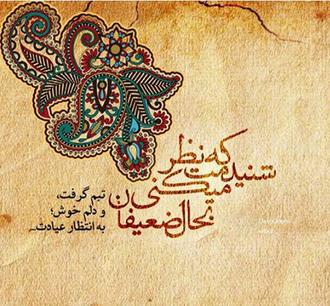 شنیدمت که نظر میکنی
بحال ضعیفان
تبم گرفت،
و دلم خوش؛
به انتظار عیادت...